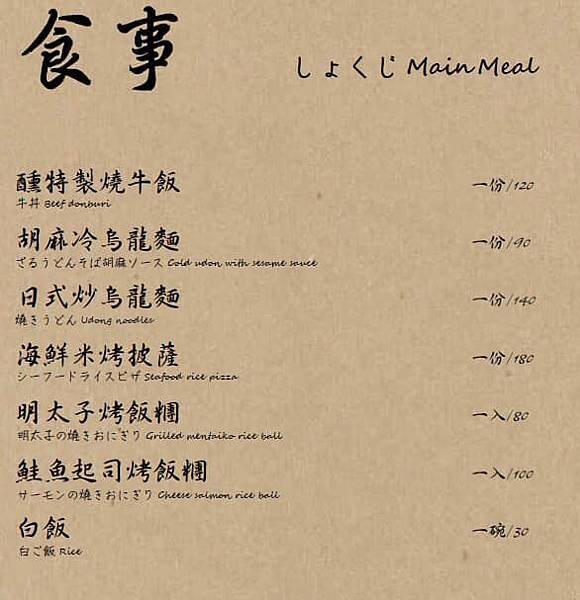 食事
しょくじ Main Meal
醺特製燒牛飯 一份/120
牛丼 Beef donburi
胡麻冷烏龍麵 一份/90
ざるうどんそば胡麻ソース Cold udon with sesame sauce
日式炒烏龍麵 一份/140
燒きうどん Udong noodles
海鮮米烤披薩 一份/180
シーフードライスピザ Seafood rice pizza
明太子烤飯糰 一入/80
明太子の燒きおにぎり Grilled mentaiko rice ball
鮭魚起司烤飯糰 一入/100
サーモンの燒きおにぎり Cheese salmon rice ball
白飯 一碗/30
白ご飯 Rice